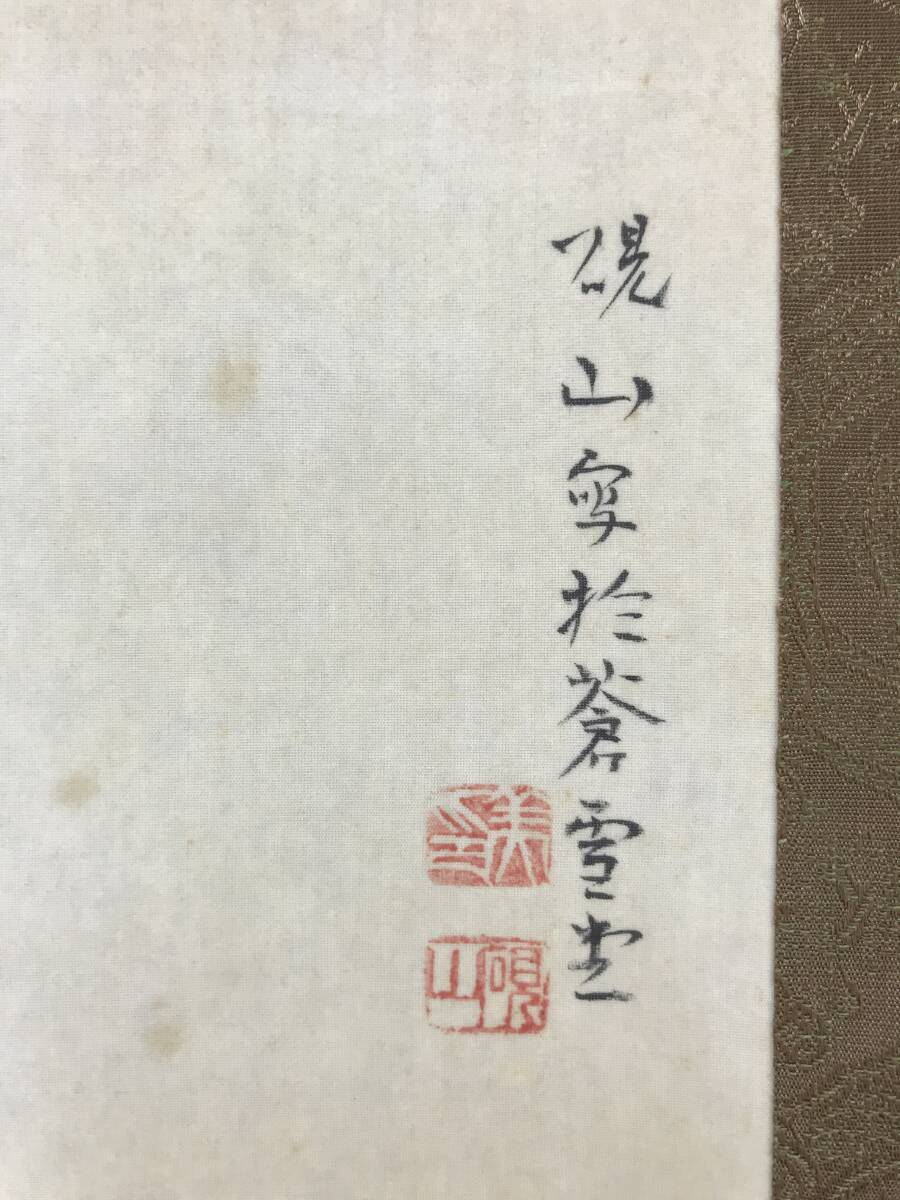 硯山写於蒼雪堂
硯山